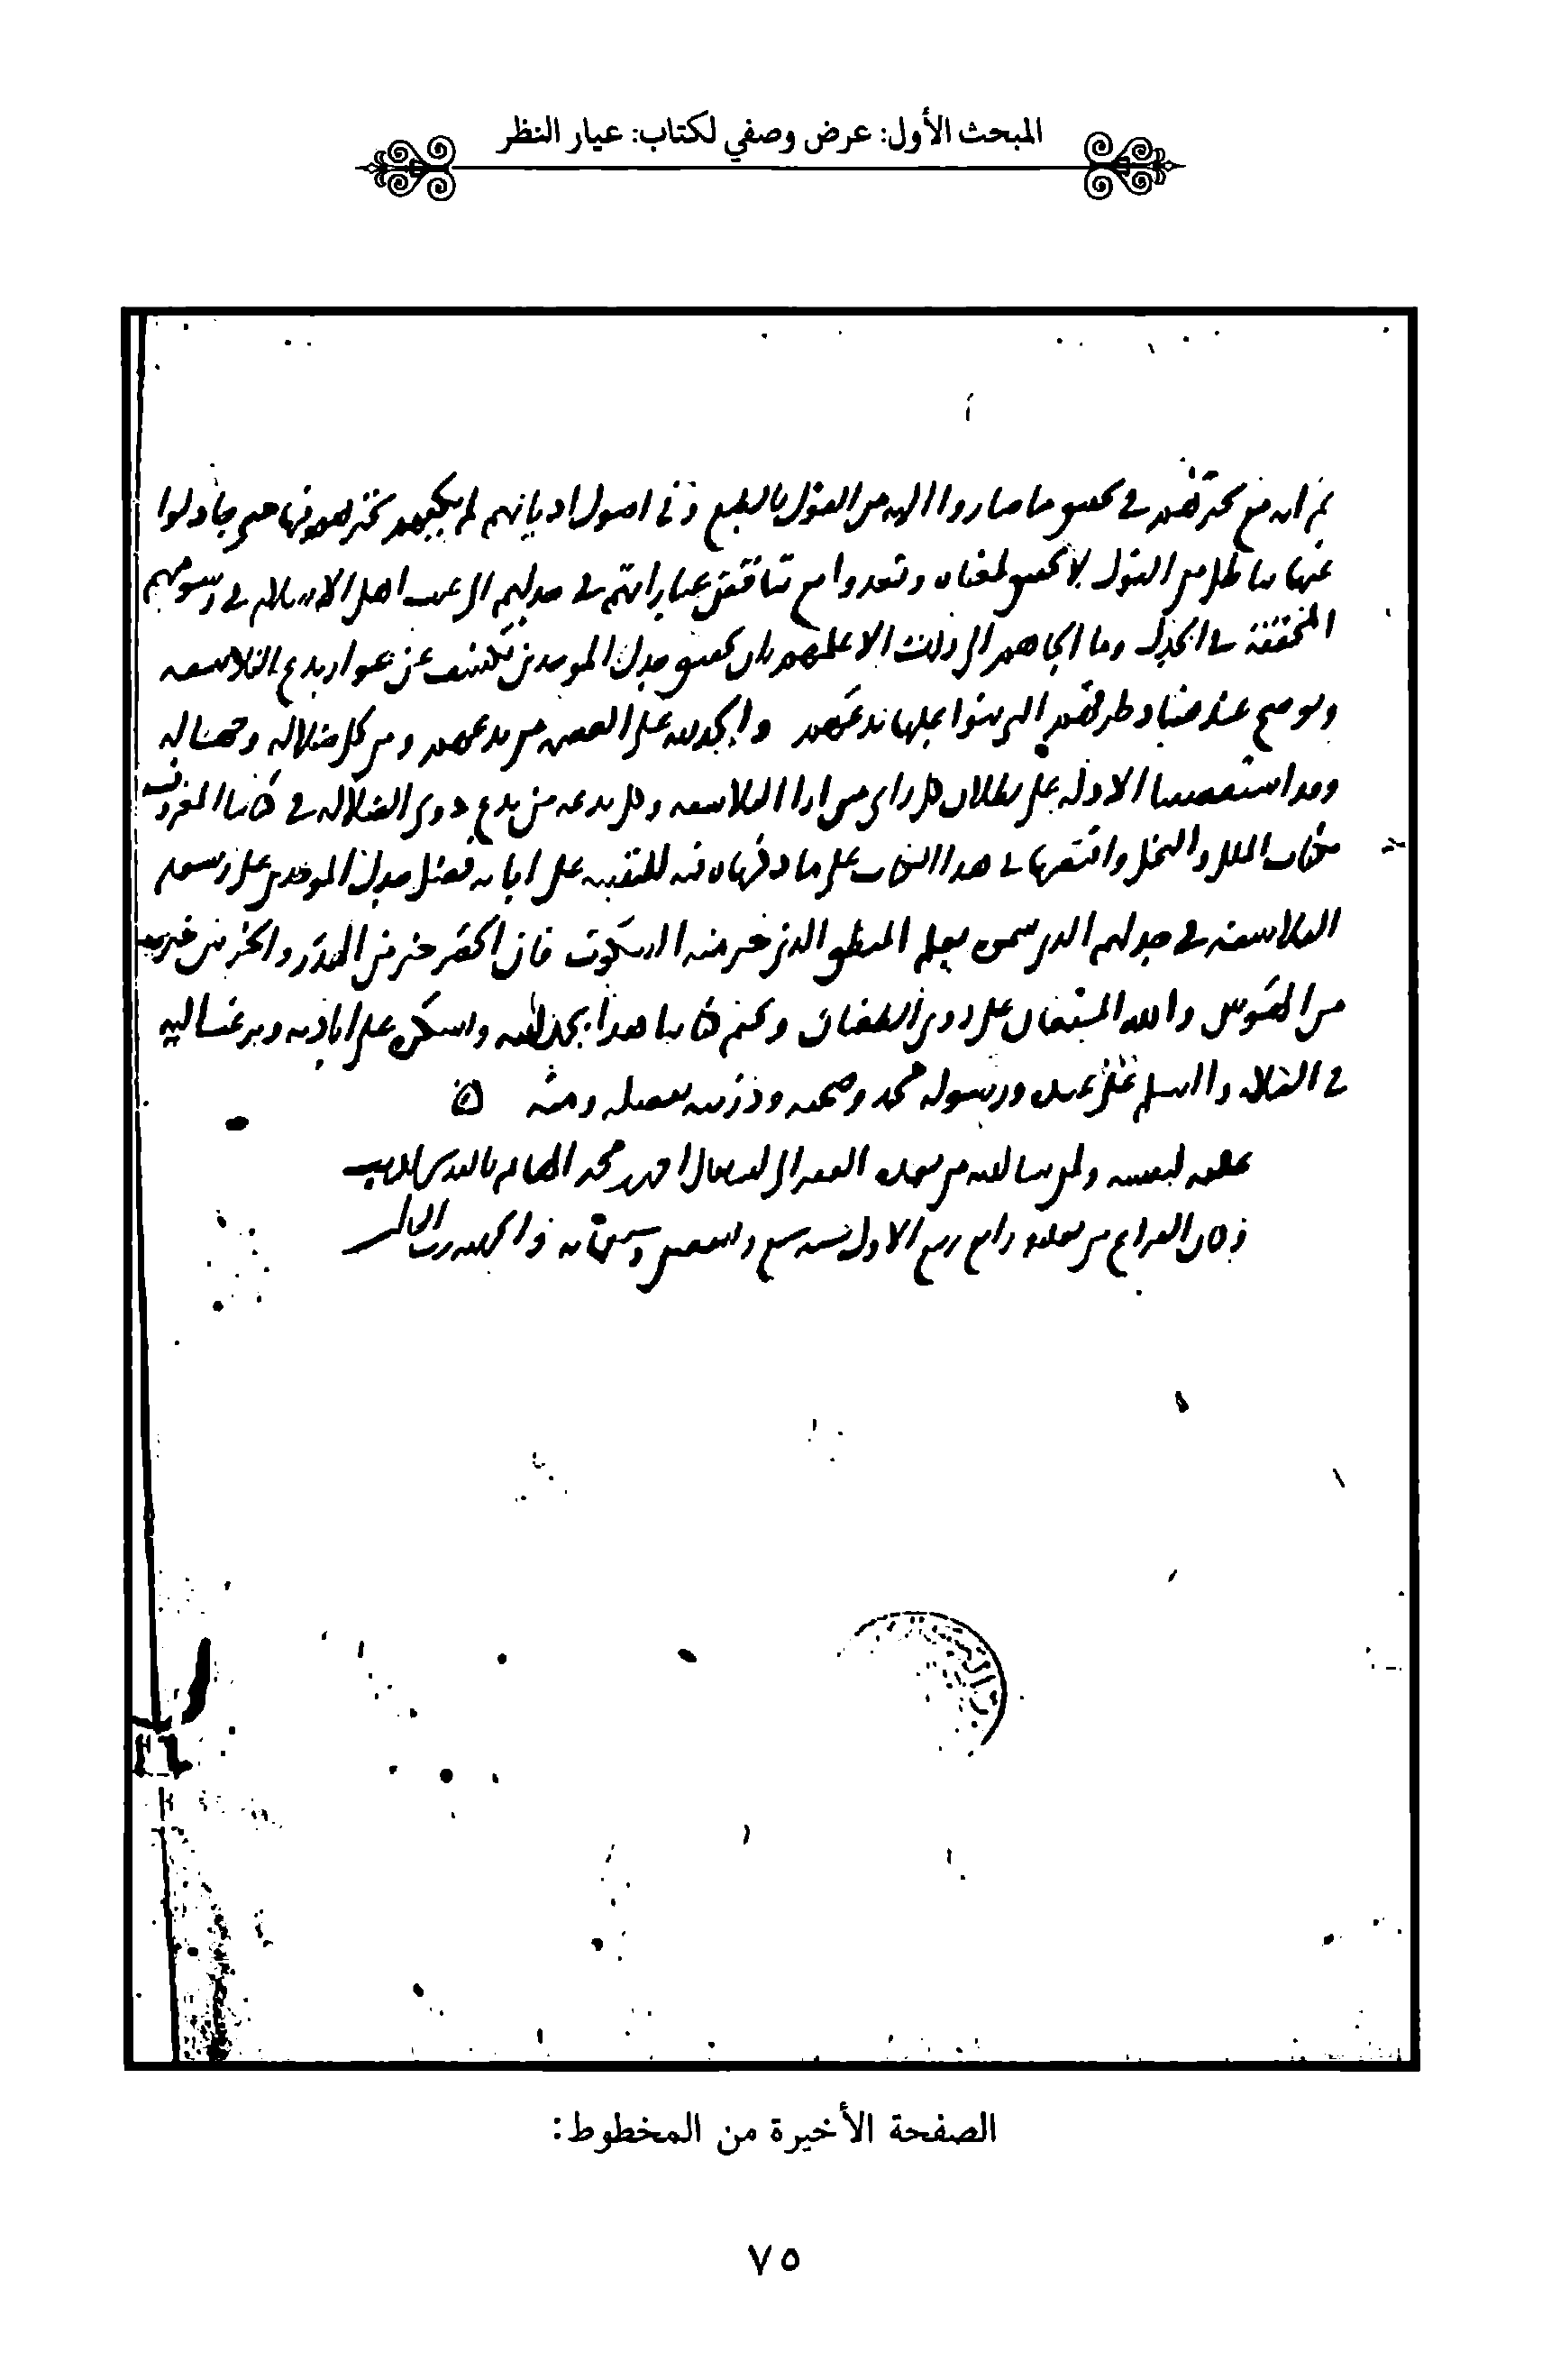 المبحث الأول: عرض وصفي لكتاب: عيار النظر
ثم ان مع تحيرهم في تحقيق ما صاروا اليه من القول بالطبع وفي اصول اديانهم لم يكفهم تحيرهم فيها حتى جادلوا
عنها بباطل من القول لا تحقيق لمعناه وقعدوا مع تناقض عباراتهم في جدلهم الى عيب اهل الاسلام في رسومهم
المحققة في الجدل وما الجاهم الى ذلك الا علمهم بان تحقيق جدل الموحدين يكشف عن عوار بدع الفلاسفة
ويوضح عند فساد طرقهم التي بنوا عليها بدعهم والحمد لله على العصمة من بدعهم ومن كل ضلالة وجهالة
وقد استقصينا الادلة على بطلان كل راي من ارا الفلاسفة وكل بدعة من بدع ذوي الضلالة في كتابنا المعروف
بكتاب الملل والنحل واقتصرنا في هذا الكتاب على ما ذكرناه فيه للتنبيه على ابانة فضل جدل الموحدين على رسوم
الفلاسفة في جدلهم الذي سموه بعلم المنطق الذي خير منه السكوت فان الحصر خير من الهذر والخرس خير
من الهوس والله المستعان على ذوي الطغيان ونختم كتابنا هذا بحمد الله واشكره على اياديه وبرغبتنا اليه
في الصلاة والسلم على عبده ورسوله محمد وصحبه وذريته بفضله ومنه
علقه لنفسه ولمن شا الله من بعده الفقير الى الله تعالى احمد بن محمد
وكان الفراغ من تعليقه رابع ربيع الاول سنة سبع وستمائة والحمد لله رب العالمين
الصفحة الأخيرة من المخطوط:
٧٥